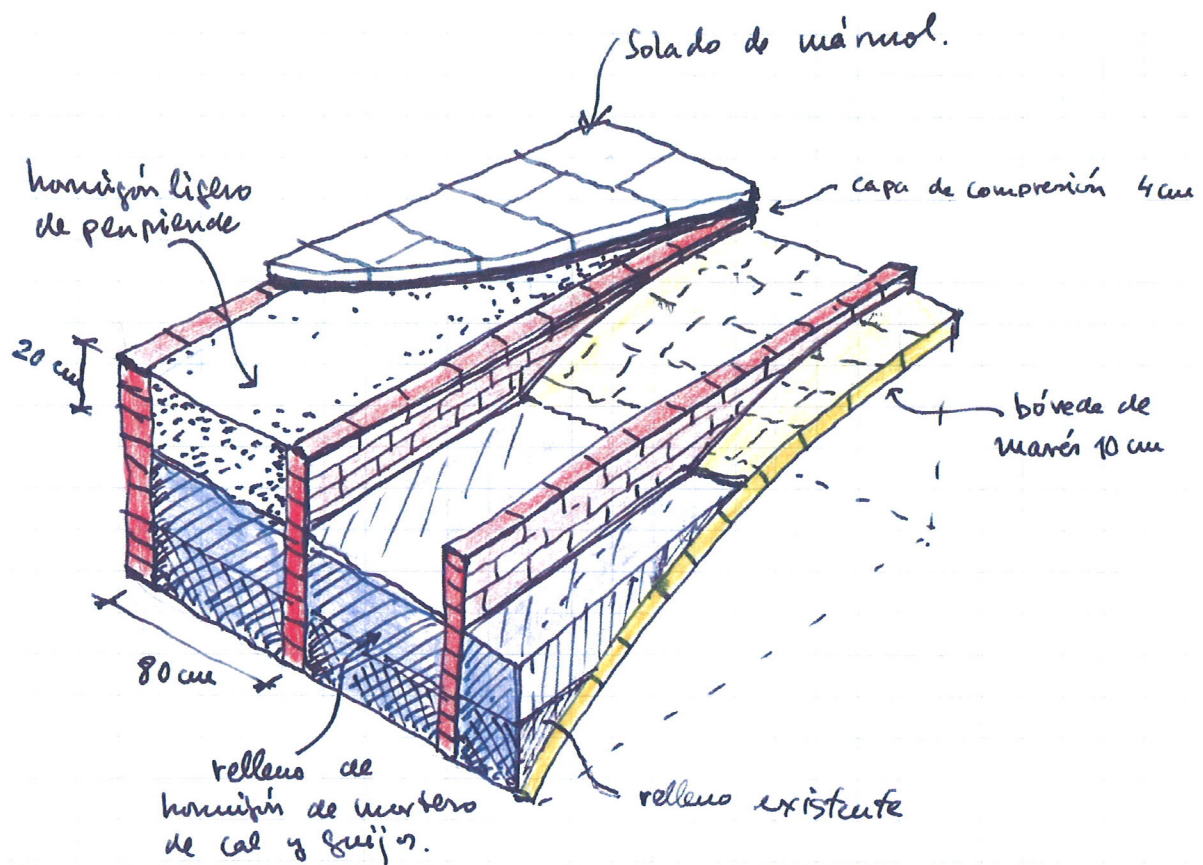 Solado de mármol.
hormigón ligero
de
capa de compresión 4 cm
20 cm
bóveda de
marés 10 cm
80 cm
relleno de
hormigón de mortero
de cal y guijo.
relleno existente